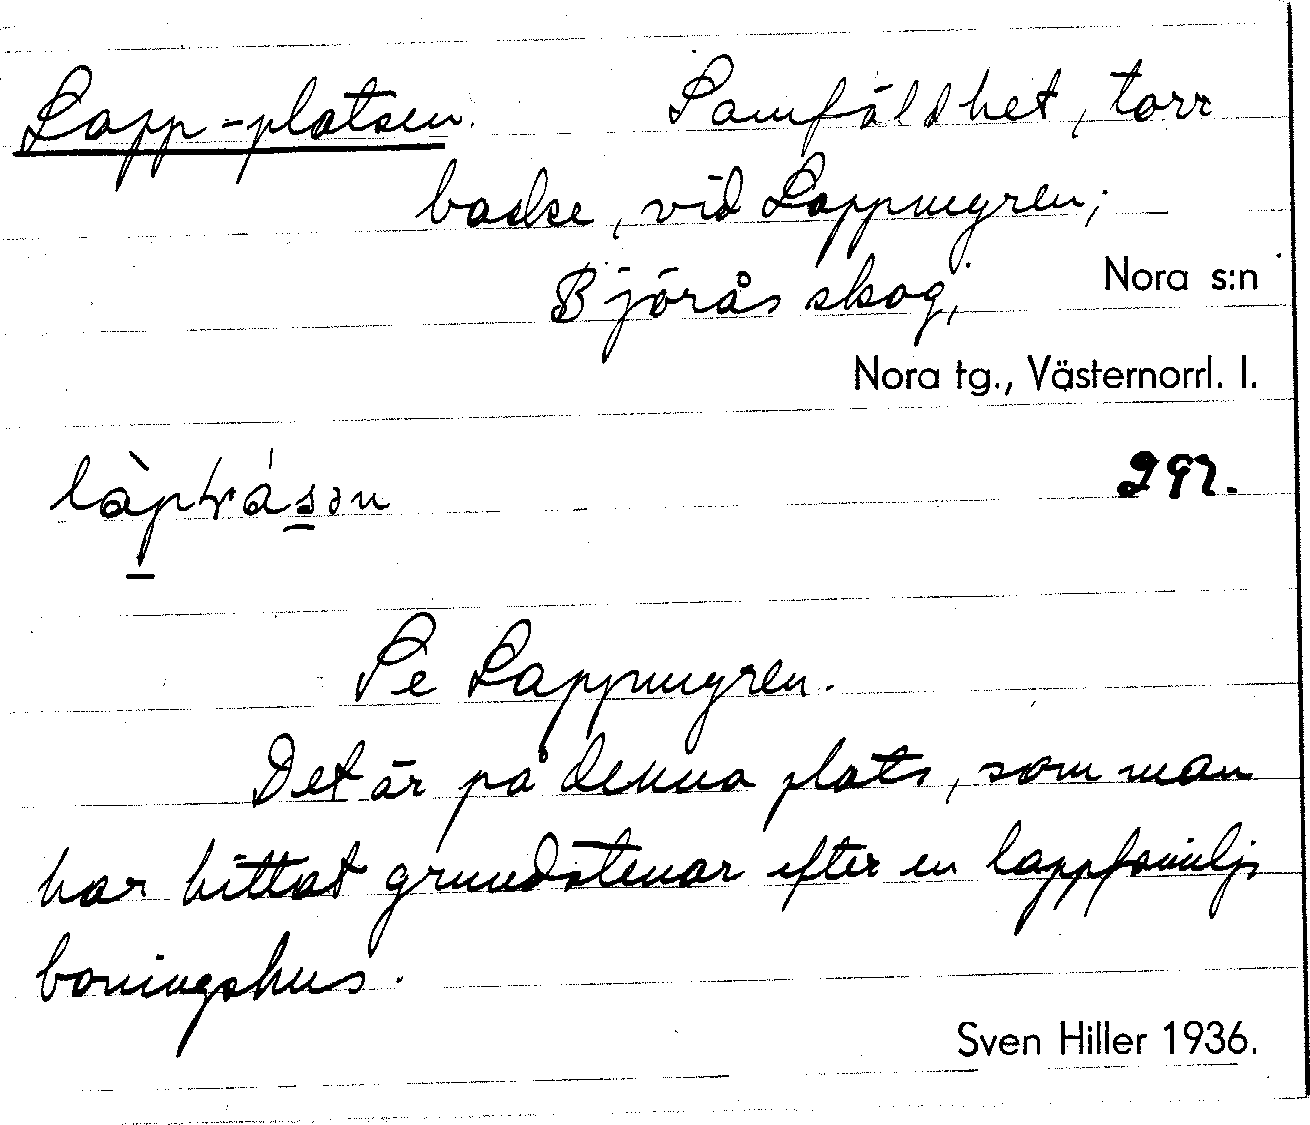 Lapp-platsen. Samfäldhet, torr
backe, vid Lappmyren;
Björås skog, Nora s:n
Nora tg., Västernorrl. l.
292.
Se Lappmyren.
Det är på denna plats, som man
har hittat grundstenar efter en lappfamiljs
boningshus.
Sven Hiller 1936.